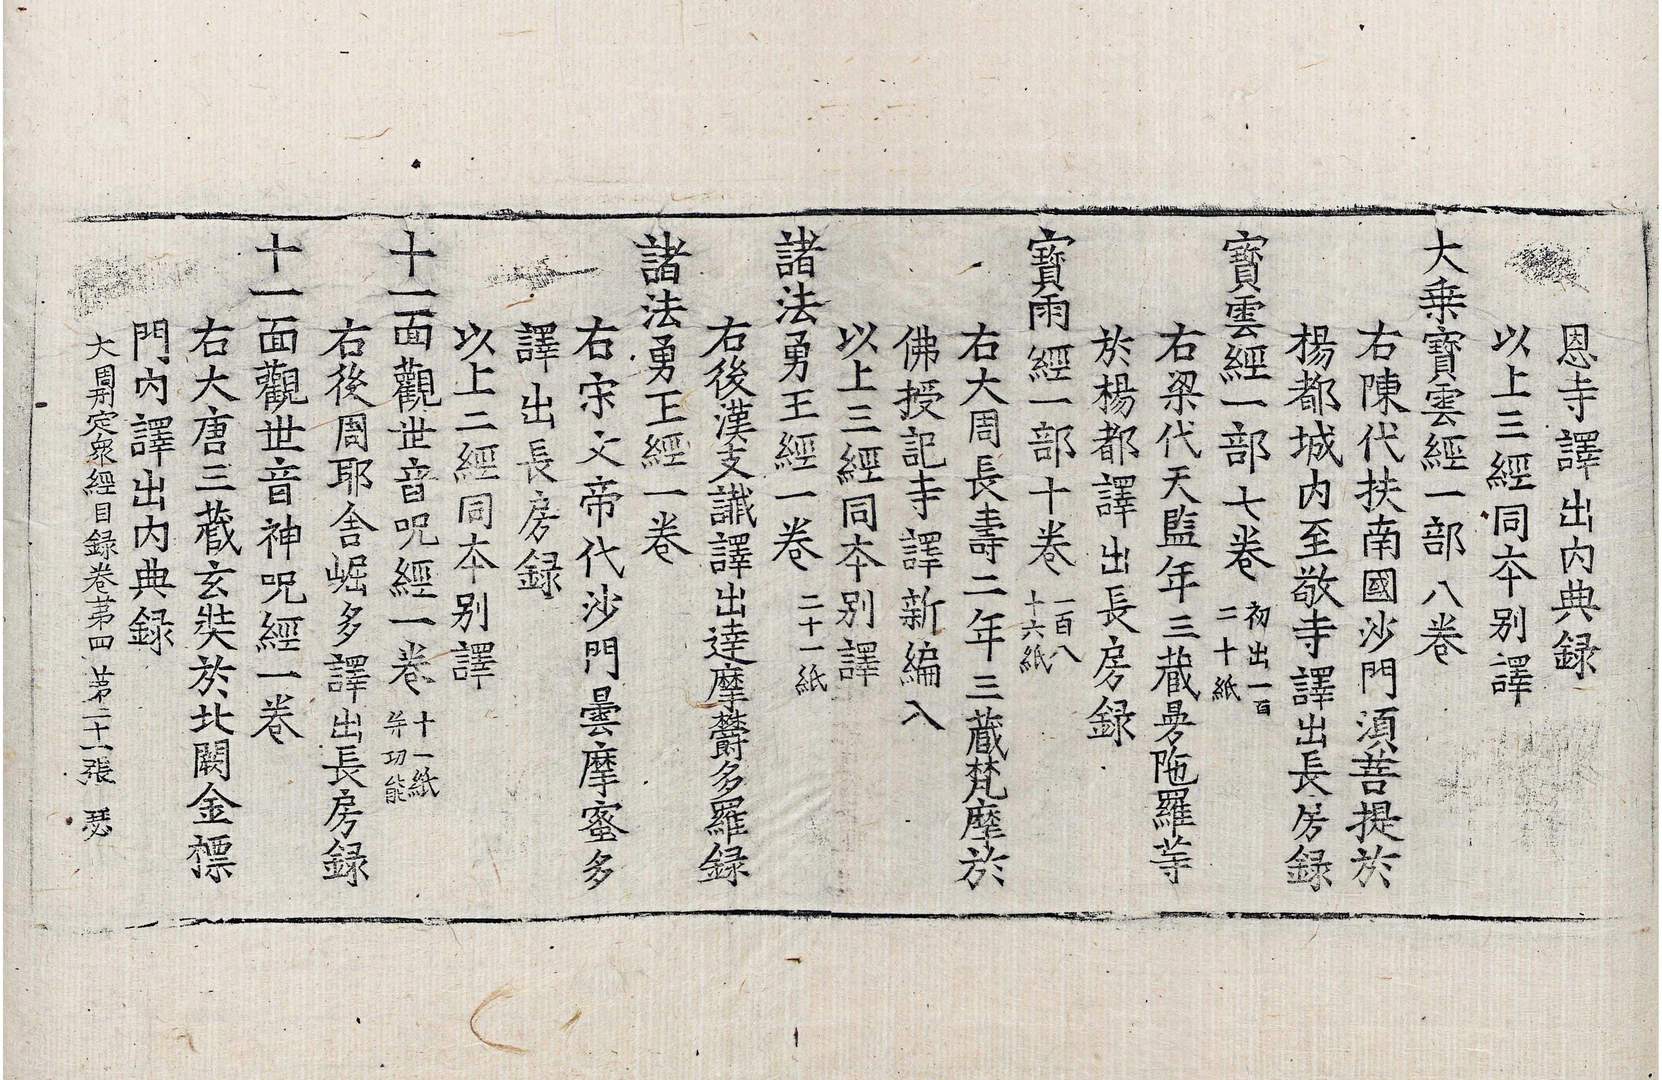 恩寺譯出內典録
以上三經同夲别譯
大乗寶雲經一部八卷
右陳代扶南國沙門湏菩提於
楊都城内至敬寺譯出長房録
寶雲經一部七卷 初出一百二十紙
右梁代天監年三藏曼陁羅等
於楊都譯出長房録
寶雨經一部十卷 一百八十六紙
右大周長壽二年三藏梵摩於
佛授記寺譯新編入
以上三經同夲别譯
諸法勇王經一卷 二十一紙
右後漢支讖譯出達摩欝多羅録
諸法勇王經一卷
右宋文帝代沙門曇摩蜜多
譯出長房録
以上二經同夲别譯
十一面觀世音呪經一卷 十一紙并功能
右後周耶舍崛多譯出長房録
十一面觀世音神呪經一卷
右大唐三藏玄奘於北闕金㯹
門内譯出内典録
大周刊定衆經目録卷苐四 苐二十一張 瑟